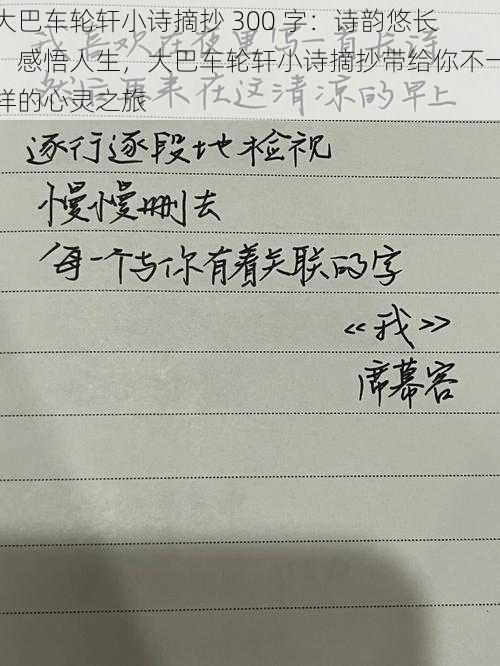 大巴车轮轩小诗摘抄 300 字：诗韵悠长
，感悟人生，大巴车轮轩小诗摘抄带给你不一
样的心灵之旅
我喜欢在夜里写一首长诗
然后再来在这清凉的早上
逐行逐段地检视
慢慢删去
每一个与你有着关联的字
《我》
席慕容